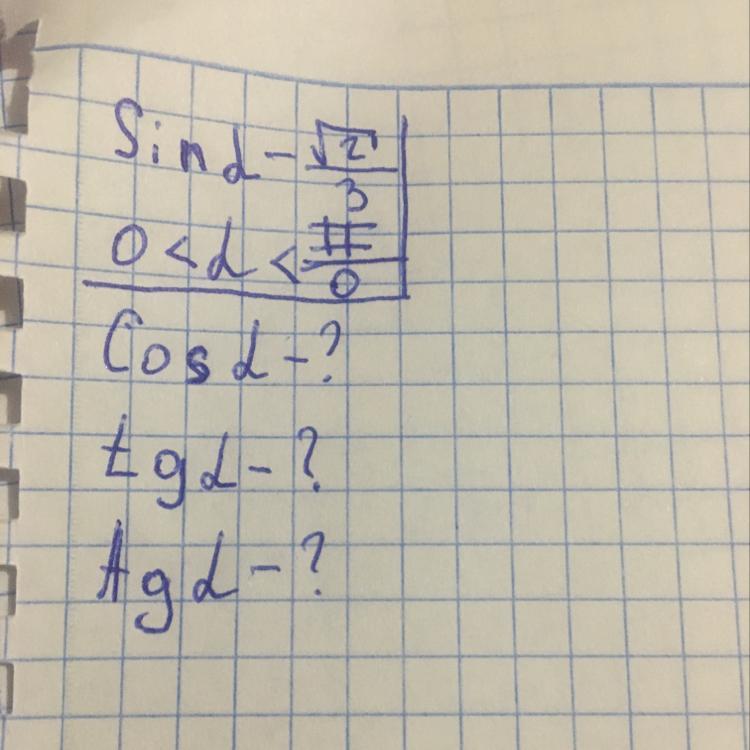 Sin α - √2/3
0 < α < π/0
Cos α - ?
tg α - ?
Ag α - ?